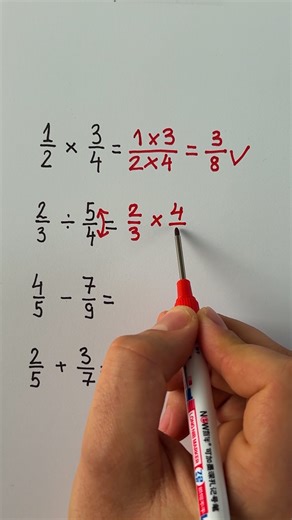 1/2 × 3/4 = 1×3/2×4 = 3/8 ✓
2/3 ÷ 5/4 = 2/3 × 4/
4/5 − 7/9 =
2/5 + 3/7